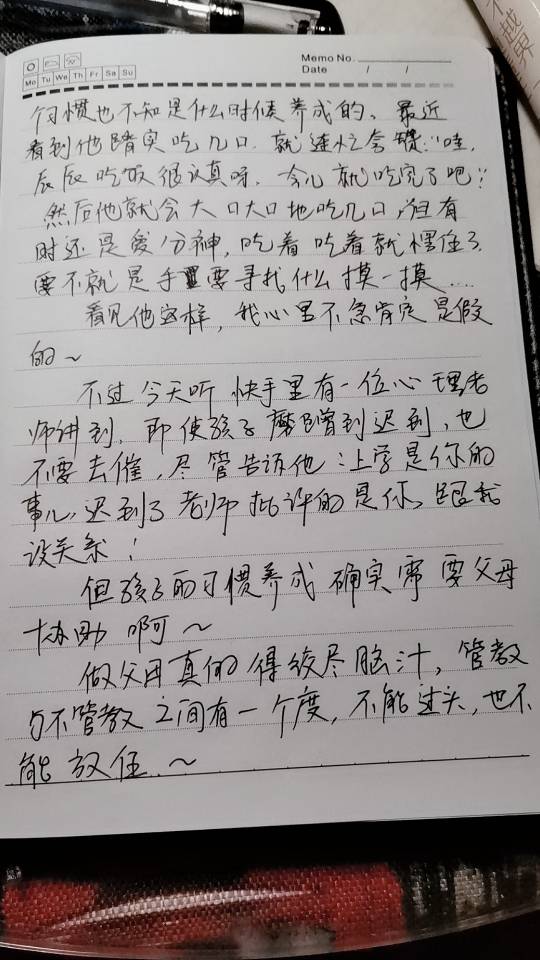 Memo No.
Mo Tu We Th Fr Sa Su
Date / /
个习惯也不知是什么时候养成的。最近
看到他踏实吃几口,就连忙会赞:“哇,
辰辰吃饭很认真呀,今儿就吃完了吧!”
然后他就会大口大口地吃几口,但有
时还是爱分神,吃着吃着就愣住了,
要不就是手里要寻找什么摸一摸…
看见他这样,我心里不急肯定是假
的~
不过今天听快手里有一位心理老
师讲到,即使孩子磨蹭到迟到,也
不要去催,尽管告诉他:上学是你的
事儿,迟到了老师批评的是你,跟我
没关系!
但孩子的习惯养成确实需要父母
协助啊~
做父母真的得绞尽脑汁,管教
与不管教之间有一个度,不能过头,也不
能放任.~
越界